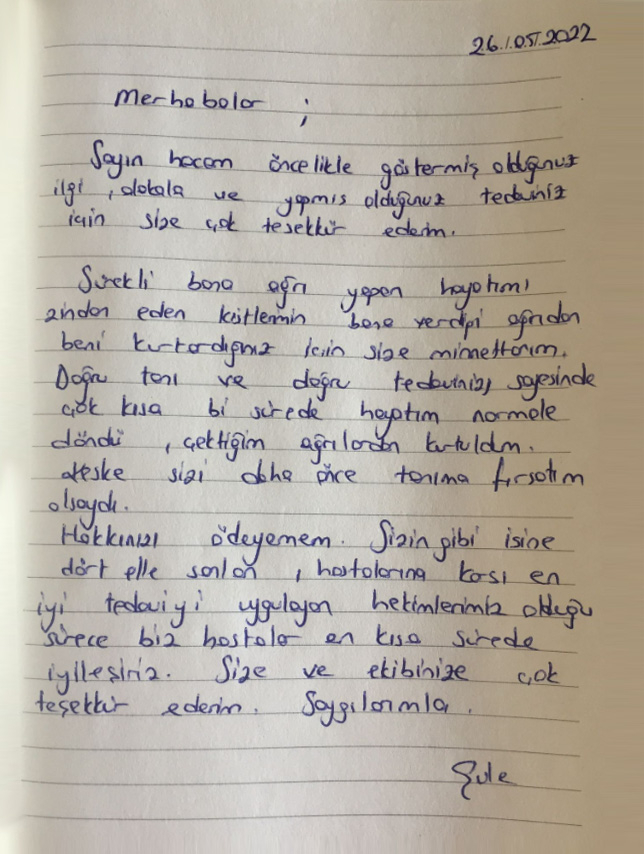 26.05.2022
Merhabalar ;
Sayın hocam öncelikle göstermiş olduğunuz
ilgi , alakala ve yapmıs olduğunuz tedaviniz
için size çok tesekkür ederim.
Surekli bana ağrı yapan hayatımı
zindan eden kistlerimin bana verdiği ağrıdan
beni kurtardığınız için size minnettarım.
Doğru tanı ve doğru tedaviniz sayesinde
çok kısa bi sürede hayatım normale
döndü , çektiğim ağrılardan kurtuldum.
Keske sizi daha önce tanıma fırsatım
olsaydı.
Hakkınızı ödeyemem. Sizin gibi isine
dört elle sarılan , hastalarına karsı en
iyi tedaviyi uygulayan hekimlerimiz olduğu
sürece biz hastalar en kısa surede
iyileşiriz. Size ve ekibinize çok
teşekkür ederim. Saygılarımla.
Şule